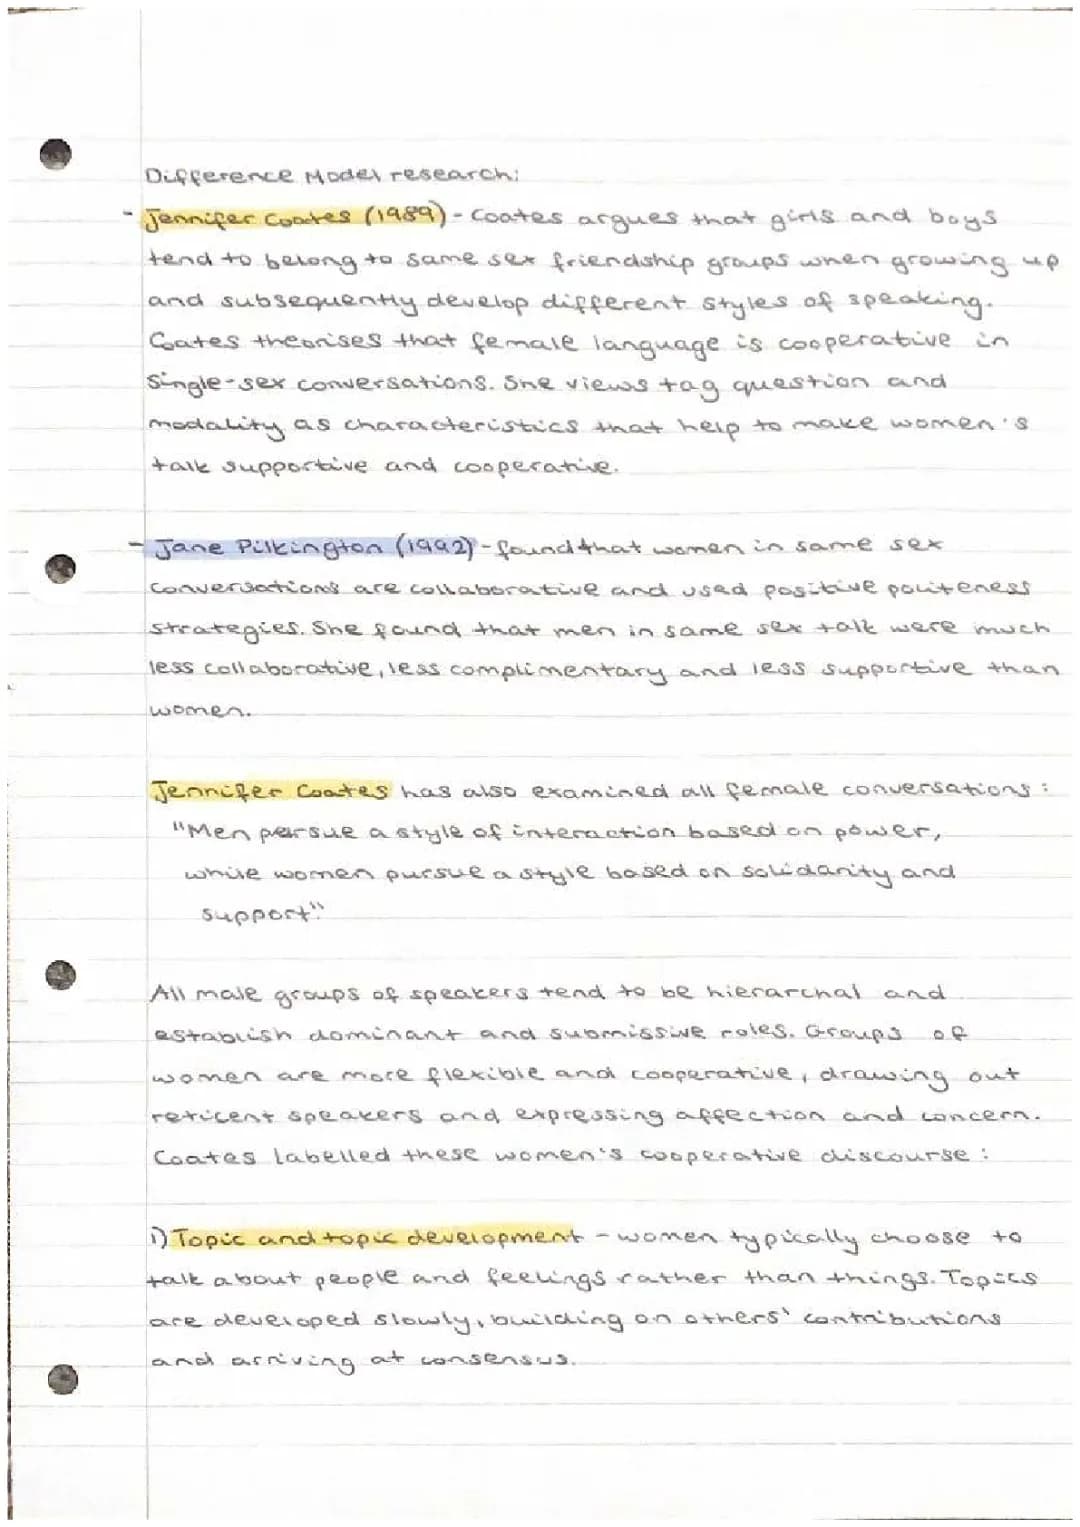 Difference Model research:
- Jennifer Coates (1989) - Coates argues that girls and boys
tend to belong to same sex friendship groups when growing up
and subsequently develop different styles of speaking.
Coates theorises that female language is cooperative in
single-sex conversations. She views tag question and
modality as characteristics that help to make women's
talk supportive and cooperative.
- Jane Pilkington (1992) - found that women in same sex
conversations are collaborative and used positive politeness
strategies. She found that men in same sex talk were much
less collaborative, less complimentary and less supportive than
women.
Jennifer Coates has also examined all female conversations:
"Men persue a style of interaction based on power,
while women pursue a style based on solidarity and
support."
All male groups of speakers tend to be hierarchal and
establish dominant and submissive roles. Groups of
women are more flexible and cooperative, drawing out
reticent speakers and expressing affection and concern.
Coates labelled these women's cooperative discourse:
1) Topic and topic development - women typically choose to
talk about people and feelings rather than things. Topics
are developed slowly, building on others' contributions
and arriving at consensus.